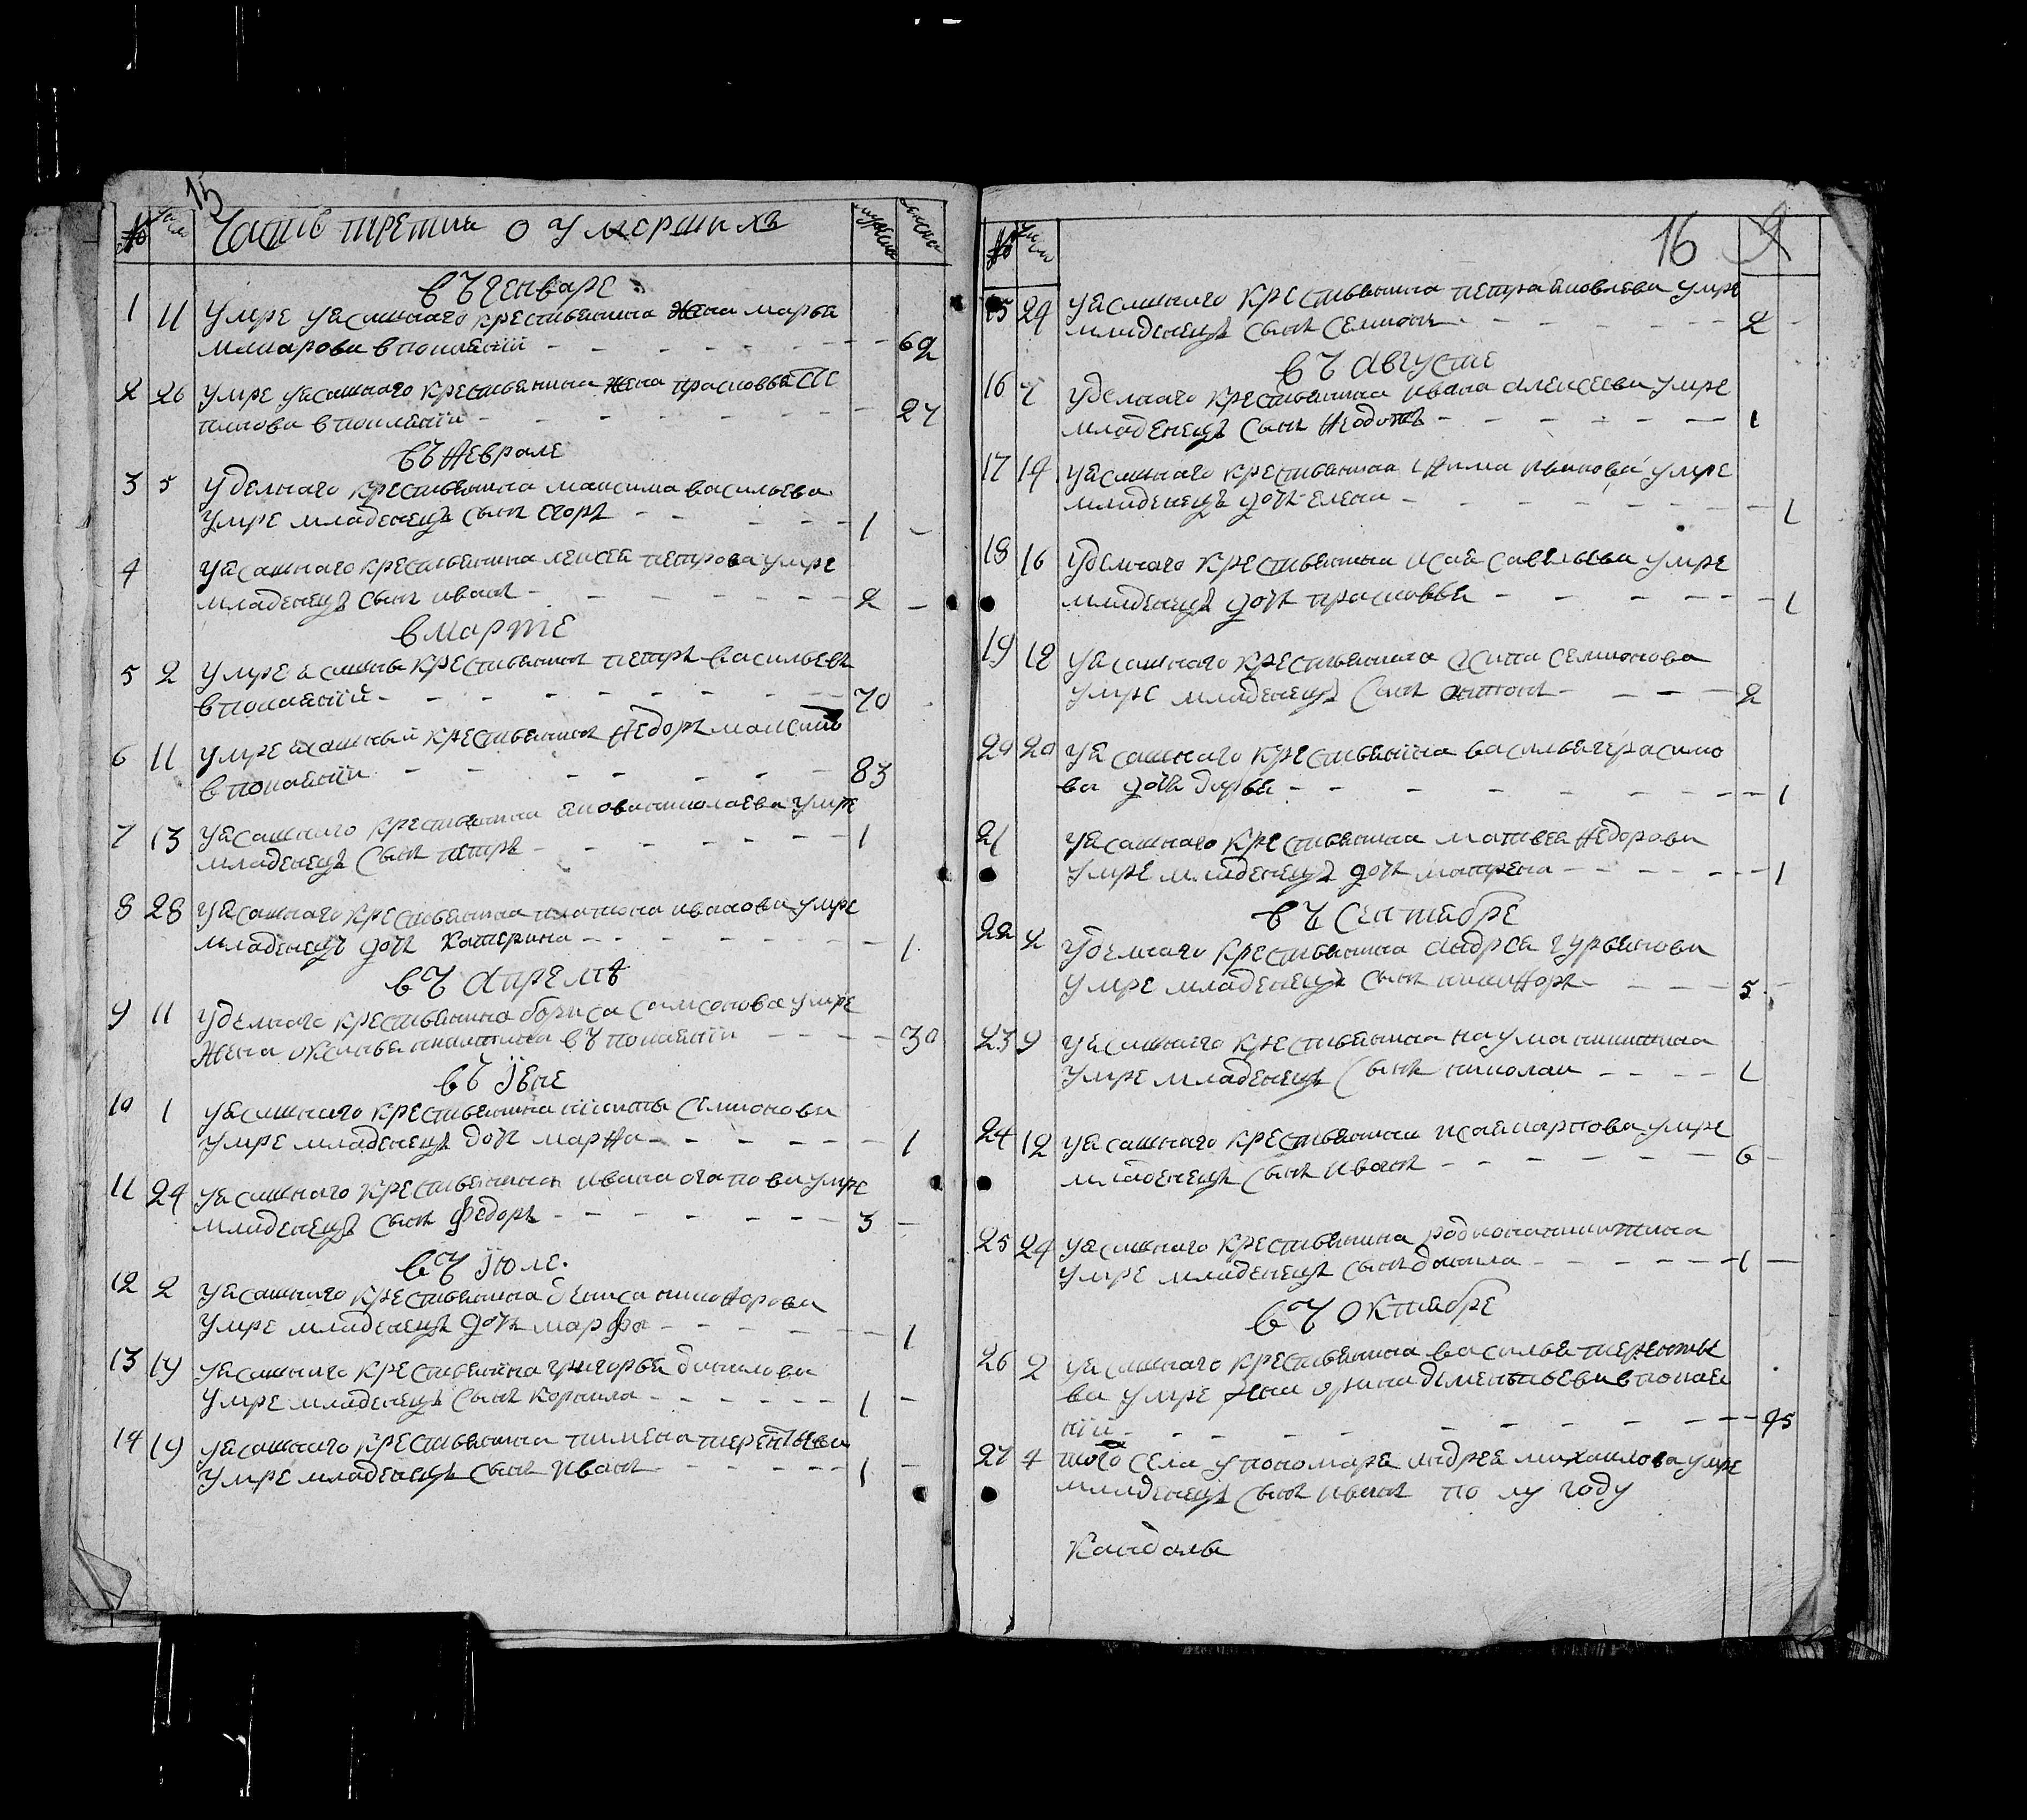 15
№ число Часть третия о умерших мужска женска
въ генваре
1 11 умре уясашнаго крестьянина жена марья
макарова в покаянїи 62
2 26 умре уясашнаго крестьянина жена прасковья
в покаянїи 27
въ ѳеврале
3 5 уделнаго крестьянина максима васильева
умре младенецъ сынъ егоръ 1
4 уясашнаго крестьянина алексея петрова умре
младенецъ сынъ иванъ 2
в марте
5 2 умре ясашны крестьянинъ петръ васильевъ
в покаянїи 70
6 11 умре ясашный крестьянинъ ѳедоръ
в покаянїи 83
7 13 уясашнаго крестьянина якова николаева умре
младенецъ сынъ петръ 1
8 28 уясашнаго крестьянина платона иванова умре
младенецъ дочь катерина 1
въ апреле
9 11 уделнаго крестьянина бориса самсонова умре
жена въ покаянїи 30
въ їюне
10 1 уясашнаго крестьянина никиты семионова
умре младенецъ дочь марѳа 1
11 24 уясашнаго крестьянина ивана агапова умре
младенецъ сынъ федоръ 3
въ їюле.
12 2 уясашнаго крестьянина дениса никиѳорова
умре младенецъ дочь марфа 1
13 19 уясашнаго крестьянина григорья данилова
умре младенецъ сынъ корнила 1
14 19 уясашнаго крестьянина пимена терентьева
умре младенецъ сынъ иванъ 1
16
№ число
15 24 уясашнаго крестьянина петра яковлева умре
младенецъ сынъ семионъ 2
въ августе
16 7 уделнаго крестьянина ивана алексеева умре
младенецъ сынъ ѳедотъ 1
17 14 уясашнаго крестьянина иванова умре
младенецъ дочь елена 1
18 16 уделнаго крестьянина исая савельева умре
младенецъ дочь прасковья 1
19 18 уясашнаго крестьянина осипа семионова
умре младенецъ сынъ антонъ 2
20 20 уясашнаго крестьянина василья герасимо
ва дочь дарья 1
21 уясашнаго крестьянина матвея ѳедорова
умре младенецъ дочь матрена 1
въ сентябре
22 2 уделнаго крестьянина андрея гурьянова
умре младенецъ сынъ никиѳоръ 5
23 9 уясашнаго крестьянина наума никитина
умре младенецъ сынъ николаи 1
24 12 уясашнаго крестьянина исая карпова умре
младенецъ сынъ иванъ 6
25 24 уясашнаго крестьянина родиона никитина
умре младенецъ сынъ данила 1
въ октябре
26 2 уясашнаго крестьянина василья терентье
ва умре жена дементьева в покая
нїи 45
27 4 того села у пономаря андрея михаилова умре
младенецъ сынъ иванъ по лу году